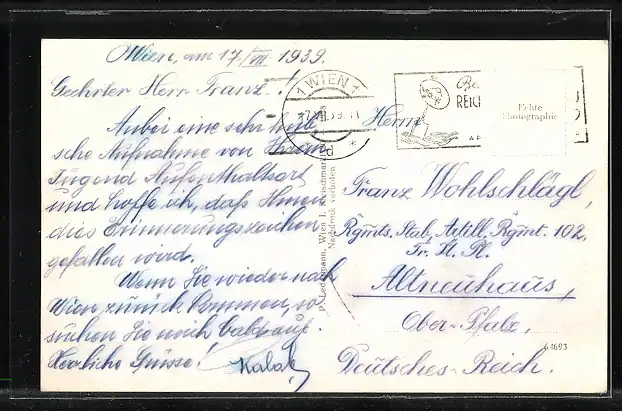 Wien, am 17./VII. 1939.
Geehrter Herr Franz!
Anbei eine sehr hüb-
sche Aufnahme von Ihrem
Jugend Aufenthaltsort
und hoffe ich, daß Ihnen
dies Erinnerungszeichen
gefallen wird.
Wenn Sie wieder nach
Wien zurück kommen, so
suchen Sie mich bald auf.
Herzliche Grüsse!
P. Ledermann, Wien I.
Nachdruck verboten
1 WIEN 1
REICH
Echte
Photographie
Herrn
Franz Wohlschlägl,
Rgmts. Stab, Artill. Rgmt. 102,
Tr. Ü. Pl.
Altneuhaus,
Ober-Pfalz,
64693
Deutsches-Reich.